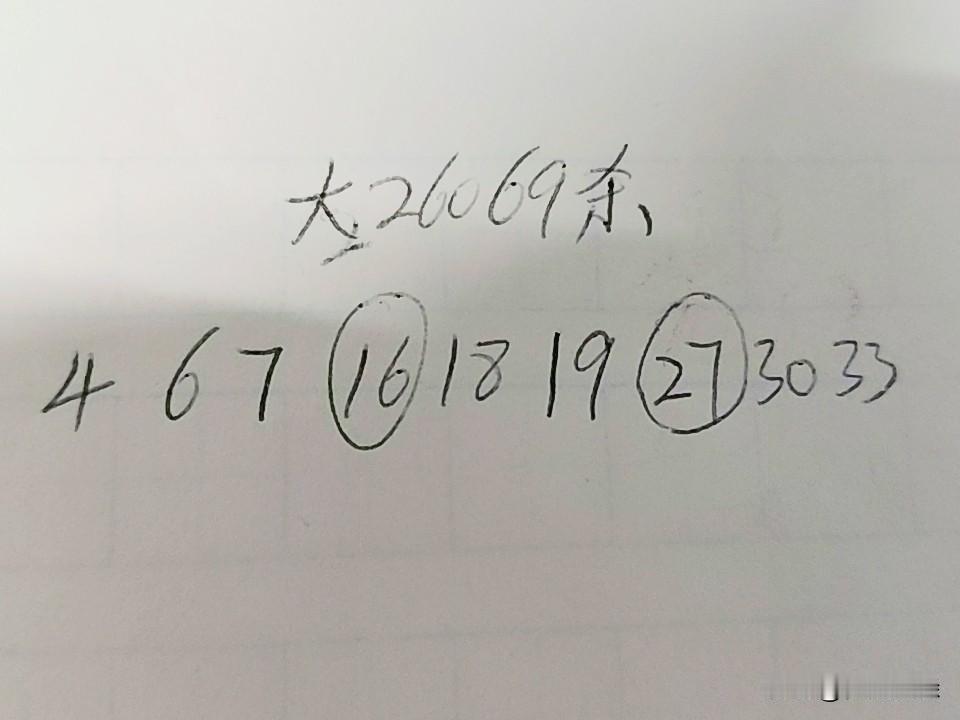 大26069杀、
4 6 7 16 18 19 27 30 33